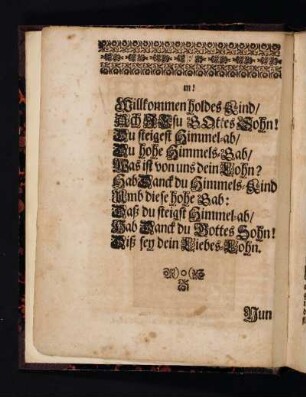 m:
Willkommen holdes Kind/
Ach JEsu GOttes Sohn!
Du steigest Himmel-ab/
Du hohe Himmels-Gab/
Was ist von uns dein Lohn?
Hab Danck du Himmels-Kind
Umb diese hohe Gab:
Daß du steigst Himmel-ab/
Hab Danck du Gottes Sohn!
Diß sey dein Liebes-Lohn.
Nun